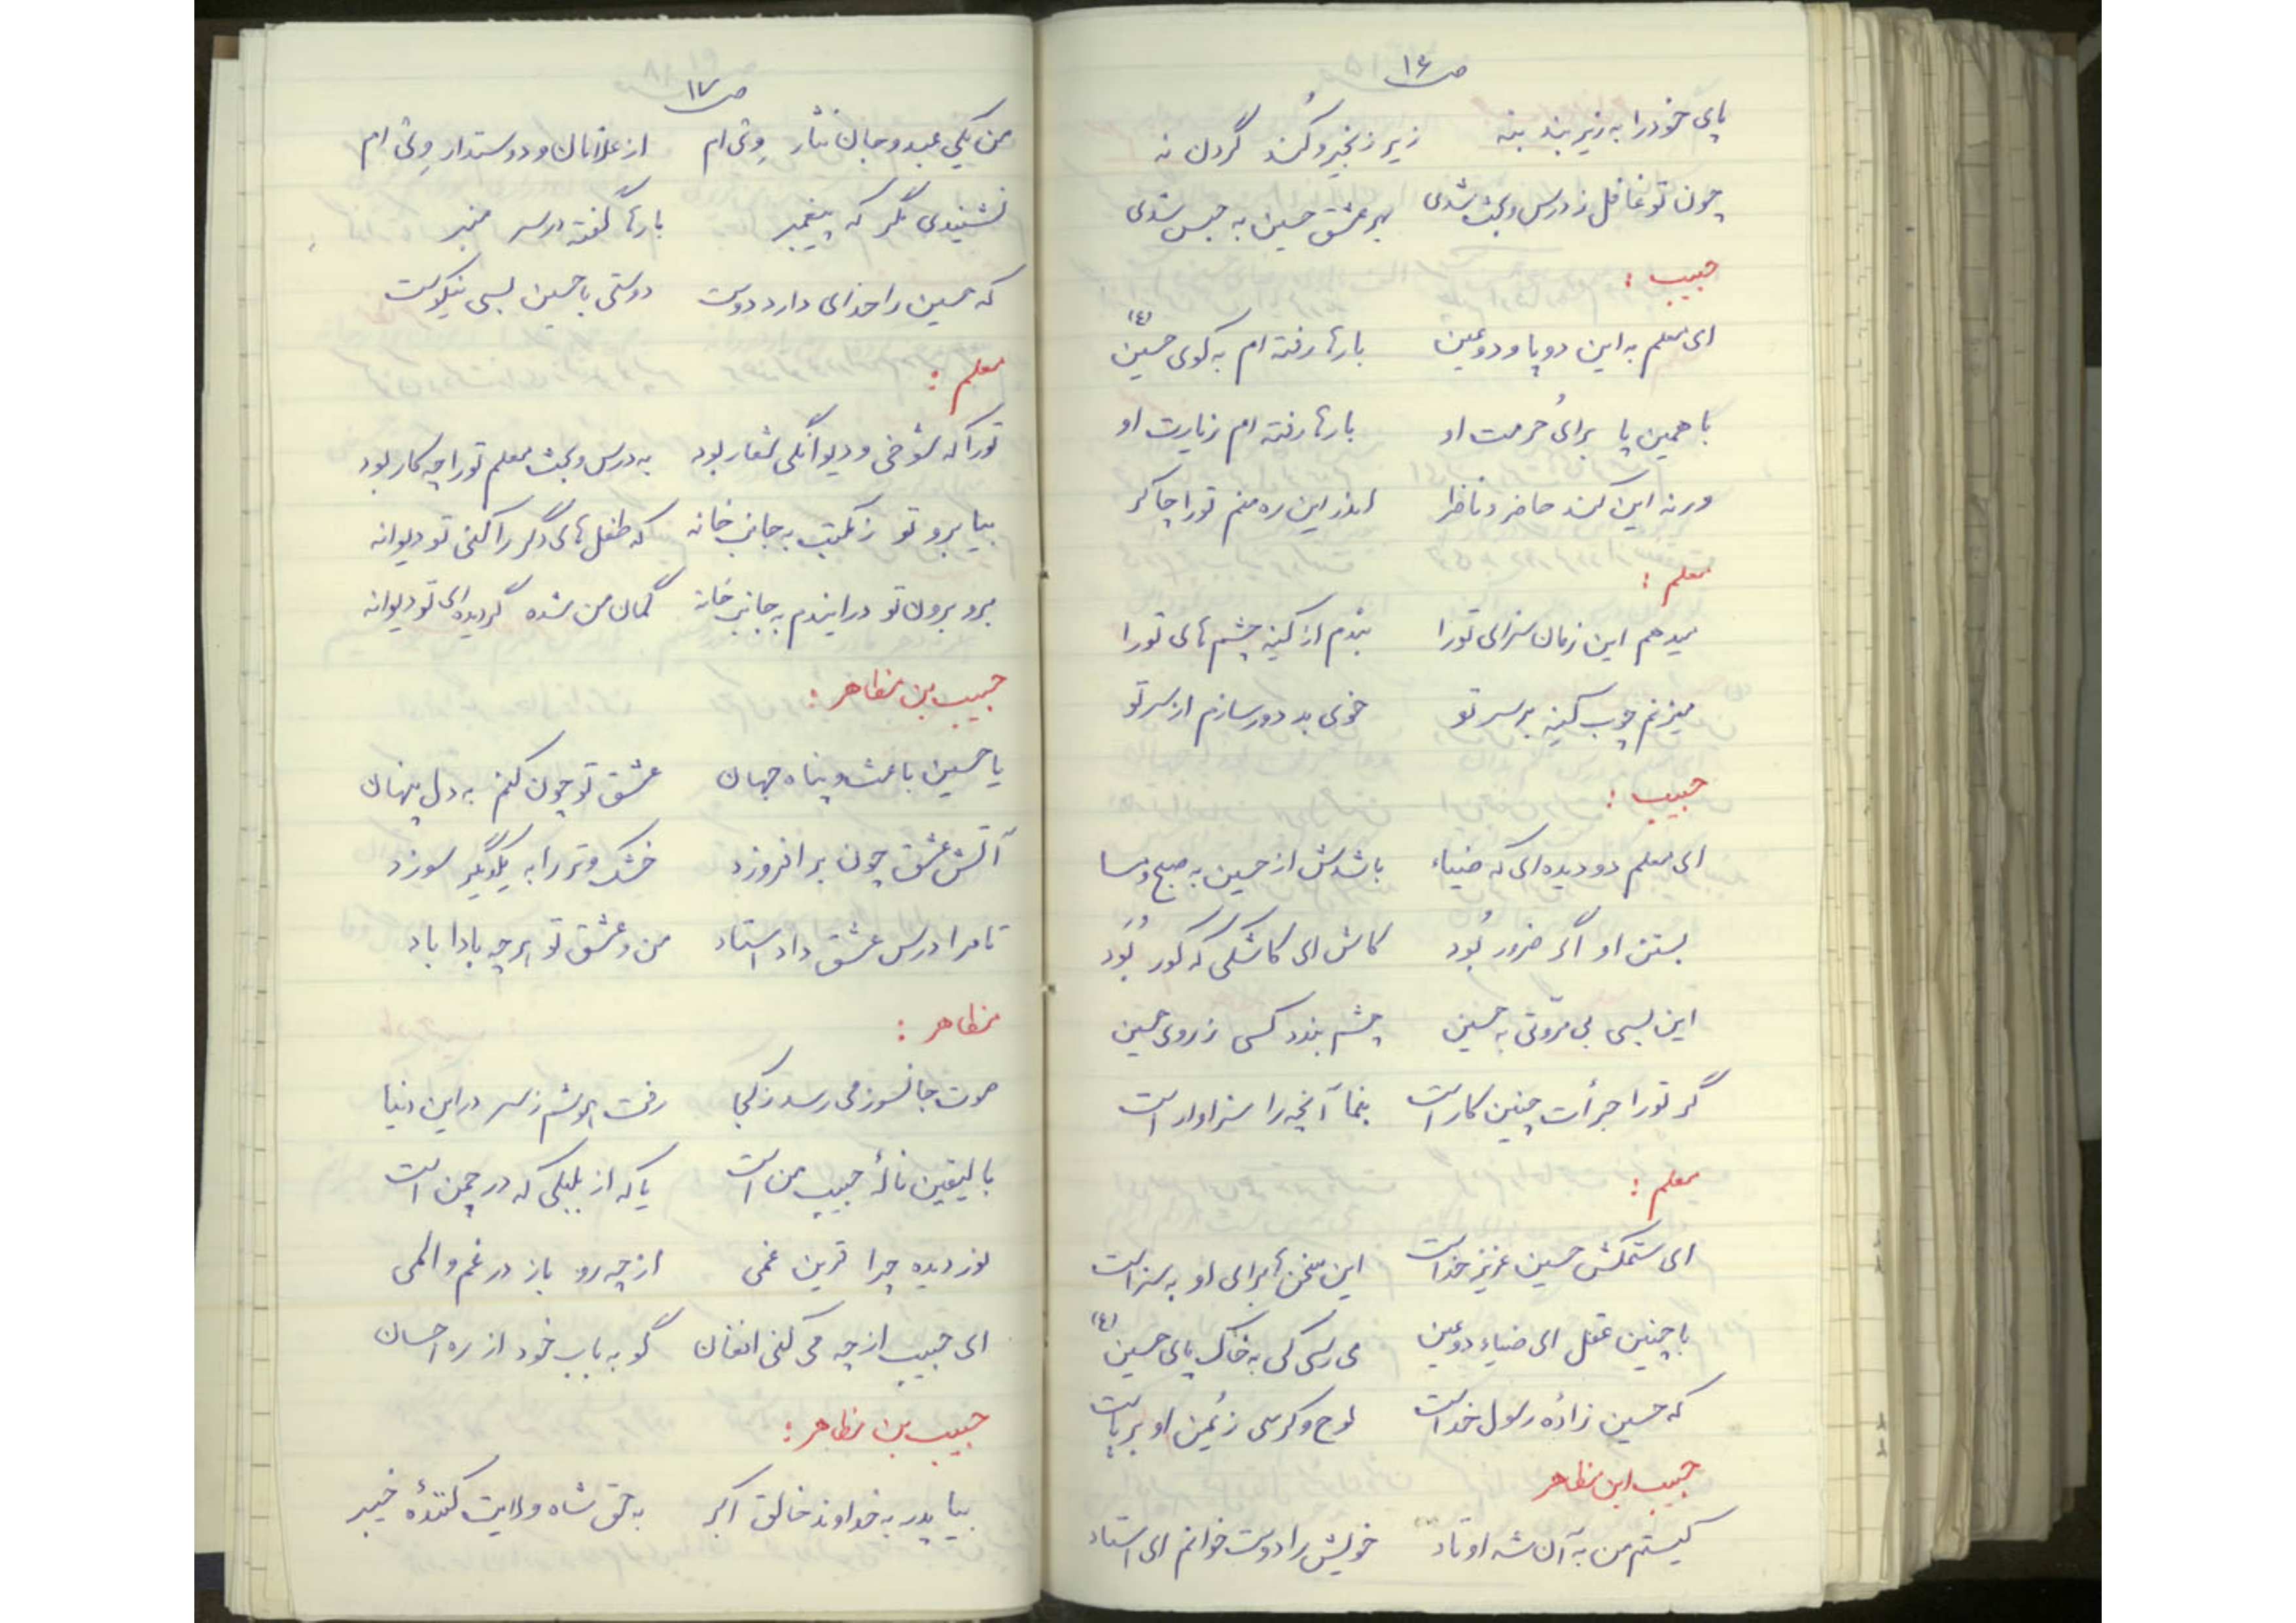 ص ۱۶
پای خود را به زیر بند بنه زیر زنجیر و کُند گردن نه
چون تو غافل ز درس و بحث شدی بهر عشق حسین به حبس شدی
حبیب :
ای معلم به این دو پا و دو عین بارها رفته ام به کوی حسین (ع)
با همین پا برای حُرمت او بارها رفته ام زیارت او
ورنه این کند حاضر و ناظر اندر این ره منم تو را چاکر
معلم :
میدهم این زمان سزای تو را بندم از کینه چشم های تو را
میزنم چوب کینه بر سر تو خوی بد دور سازم از سر تو
حبیب :
ای معلم دو دیده ای که ضیاء باشدش از حسین به صبح و مسا
بستن او اگر ضرور بُود کاش ای کاشکی که کور بُوَد
این بسی بی مروّتی به حسین چشم بندد کسی ز روی حسین
گر تو را جرأت چنین کار است بنما آنچه را سزاوار است
معلم :
ای ستمکش حسین عزیز خداست این سخن ها برای او به سزاست
با چنین عقل ای ضیاء دو عین می رسی کی به خاک پای حسین (ع)
که حسین زادهٔ رسول خداست لوح و کرسی ز یُمن او برپاست
حبیب ابن مظاهر
کیستم من به آن شه اوتاد خویش را دوست خوانم ای استاد
ص ۱۷
من یکی عبد و جان نثار وِی ام از غلامان و دوستدار وِی ام
نشنیدی مگر که پیغمبر بارها گفته در سر منبر
که حسین را خدای دارد دوست دوستی با حسین بسی نیکوست
معلم :
تو را که شوخی و دیوانگی شعار بود به درس و بحث معلم تو را چه کار بود
بیا برو تو ز مکتب به جانب خانه که طفل های دگر را کنی تو دیوانه
برو برون تو در ایندم به جانب خانه گمان من شده گردیده ای تو دیوانه
حبیب بن مظاهر :
یا حسین باعث و پناه جهان عشق تو چون کنم به دل پنهان
آتش عشق چون برافروزد خشک و تر را به یکدیگر سوزد
تا مرا درس عشق داد استاد من و عشق تو هر چه بادا باد
مظاهر :
صوت جانسوز می رسد ز کجا رفت هوشم ز سر در این دنیا
بالیقین نالهٔ حبیب من است یا که از بلبلی که در چمن است
نور دیده چرا قرین غمی از چه رو باز در غم و المی
ای حبیب از چه می کنی افغان گو به باب خود از ره احسان
حبیب بن مظاهر :
بیا پدر به خداوند خالق اکبر به حق شاه ولایت کنندهٔ خیبر